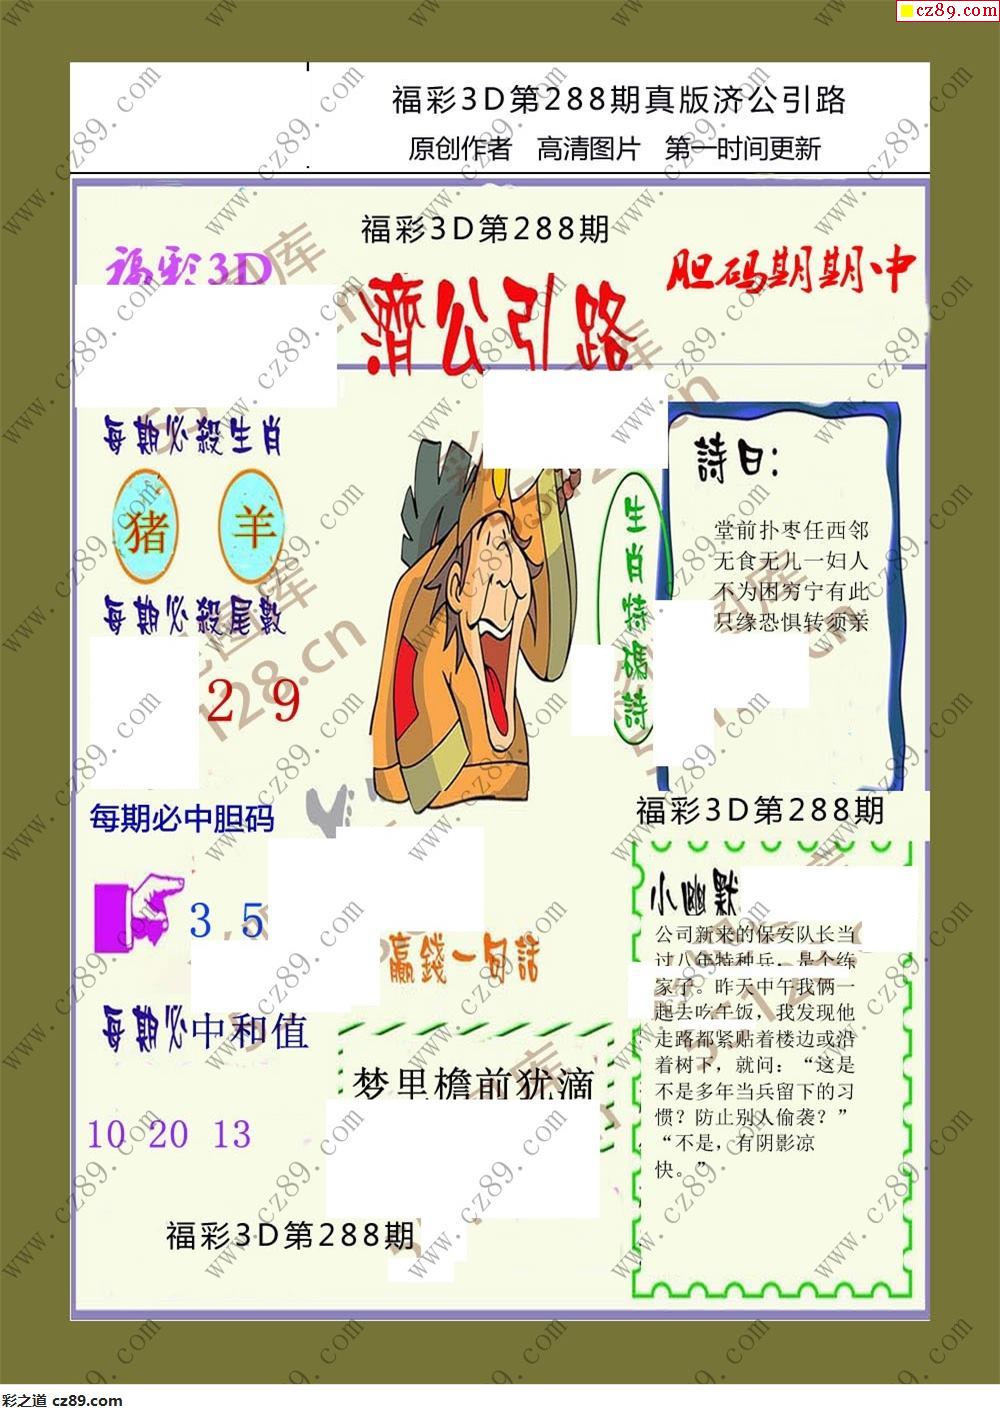 cz89.com
福彩3D第288期真版济公引路
原创作者 高清图片 第一时间更新
福彩3D第288期
福彩3D
濟公引路
胆码期期中
每期必殺生肖
猪 羊
每期必殺尾數
2 9
生肖特碼詩
詩曰:
堂前扑枣任西邻
无食无儿一妇人
不为困穷宁有此
只缘恐惧转须亲
每期必中胆码
3 5
福彩3D第288期
小幽默
公司新来的保安队长当
过八年特种兵，是个练
家子。昨天中午我俩一
起去吃午饭，我发现他
走路都紧贴着楼边或沿
着树下，就问：“这是
不是多年当兵留下的习
惯？防止别人偷袭？”
“不是，有阴影凉
快。”
贏錢一句話
梦里檐前犹滴
每期必中和值
10 20 13
福彩3D第288期
彩之道 cz89.com
www.cz89.com